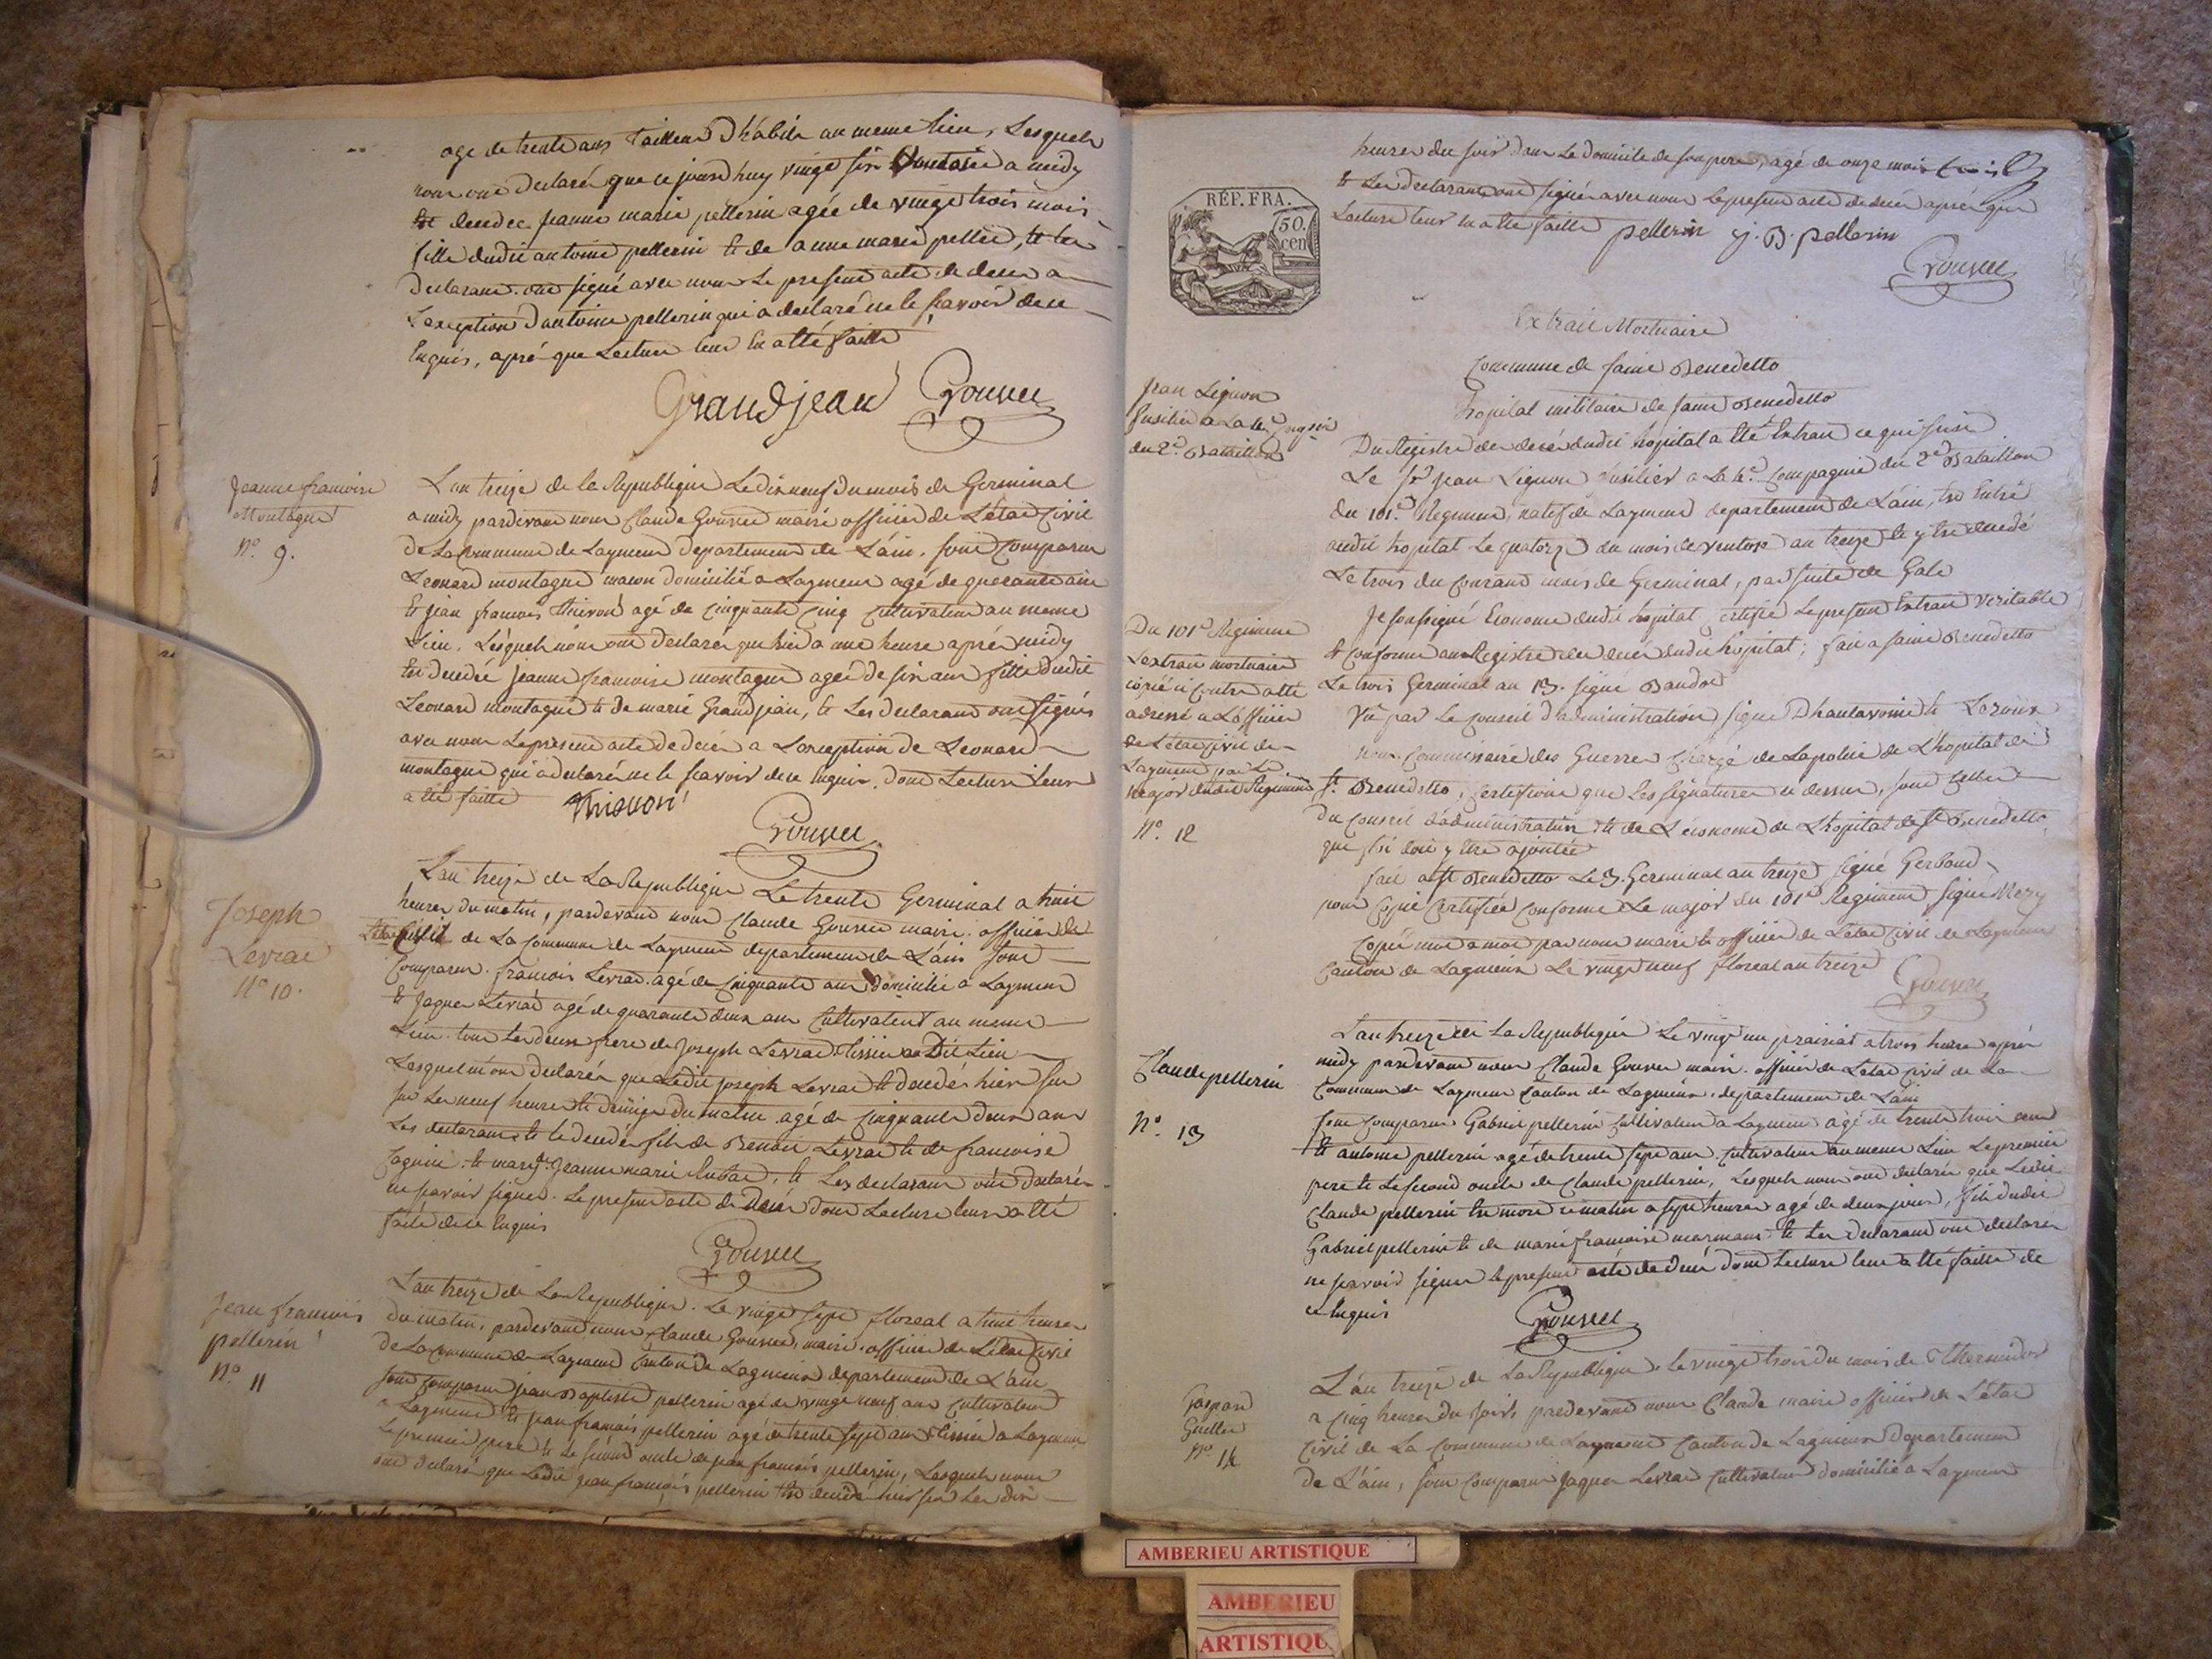 age de trente ans Tailleur D'habits au meme lieu, Lesquels
nous ont declarés que ce jourdhuy vingt six Ventose a midy
est decedee jeanne marie pellerin agée de vingt trois mois
fille dudit antoine pellerin et de anne marie pellet, et les
declarants ont signé avec nous Le present acte de deces a
L'exeption d'antoine pellerin qui a declaré ne le scavoir de ce
enquis, aprés que Lecture leur en a été faitte
Grandjean Gouvee
Jeanne francoise
Montagne
N.º 9.
L'an treize de la Republique Le dix neuf du mois de Germinal
a midy pardevant nous Claude Gouvee maire officier de L'état Civil
de La Commune de Layment departement de L'ain, sont Comparus
Leonard montagne macon domicilié a Layment agé de quarante ans
et jean francois thievon agé de Cinquante Cinq Cultivateur au meme
Lieu, Lesquels nous ont declarés que hier a une heure aprés midy
est decedée jeanne francoise montagne agée de six ans fille dudit
Leonard montagne et de marie Grandjean, et Les declarants ont signés
avec nous Le present acte de deces a L'exeption de Leonard
montagne qui a declaré ne le scavoir de ce enquis, dont Lecture leur
a été faitte
Gouvee
Joseph
Levrat
Nº 10.
L'an treize de La Republique Le trente Germinal a huit
heures du matin, pardevant nous Claude Gouvee maire officier de
L'état Civil de La Commune de Layment departement de L'ain sont
Comparus francois Levrat agé de Cinquante ans domicilié a Layment
et Jaques Levrat agé de quarante deux ans Cultivateur au meme
Lieu tous Les deux frere de Joseph Levrat tissier au Dit Lieu
Lesquels nous ont declarés que Ledit joseph Levrat est decedés hier sur
sur Les neuf heures et demige du matin agé de Cinquante deux ans
Les declarants et le decedés fils de Benoit Levrat et de francoise
et mary de Jeanne marie et Les declarants ont declarés
ne scavoir signer Le present acte de Décés dont Lecture leur a été
faite de ce enquis
Gouvee
Jean francois
pellerin
N.º 11
L'an treize de La Republique Le vingt sept floreal a huit heures
du matin, pardevant nous Claude Gouvee, maire officier de L'état Civil
de La Commune de Layment Canton de Lagnieux departement de L'ain
sont Comparus jean Baptiste pellerin agé de vingt neuf ans Cultivateur
a Layment et jean francois pellerin agé de trente sept ans tissier a Layment
Le premier pere et Le second oncle de jean francois pellerin, Lesquels nous
ont declaré que Ledit jean françois pellerin est decedé hier sur Les dix
heures du soir dans Le domicile de son pere, agé de onze mois
et Les declarants ont signé avec nous Le present acte de deces aprés que
Lecture leur en a été faitte pellerin j. B. pellerin
Gouvee
RÉP. FRA.
50.
cen
Extrait Mortuaire
Commune de Saint Benedetto
hopital militaire de Saint Benedetto
Jean Lignon
fusilier a La 4e Compagnie
du 2d Bataillon
Du Registre des decés dudit hopital a été Extrait ce qui suit
Le Sr jean Lignon fusilier a La 4e Compagnie du 2d Bataillon
du 101e Regiment, natif de Layment departement de L'ain, est Entré
audit hopital Le quatorze du mois de ventose an treize et y est decedé
Le trois du Courant mois de Germinal, par suite de Gale
Je soussigné Econome dudit hopital certifie Le present Extrait Veritable
et Conforme au Registre des decés dudit hopital; fait a Saint Benedetto
Le trois Germinal an 13. signé Baudot
Du 101e Regiment
L'extrait mortuaire
copié ci Contre a été
adressé a L'officier
de L'état Civil de
Layment par Le
major dudit Regiment
N.º 12
Vu par Le Conseil d'administration signé Dhautavoine et Leroux
nous Commissaire des Guerres Chargé de La police de L'hopital de
St. Benedetto, Certifions que Les signatures ci dessus, sont Celles
Du Conseil d'administration et de L'econome de L'hopital de St Benedetto
que foi doit y etre ajoutée
fait a St Benedetto Le 3 Germinal an treize signé Gerboud
pour Copie Certifiée Conforme Le major du 101e Regiment signé Mery
Copié mot a mot par nous maire et officier de L'état Civil de Layment
Canton de Lagnieux Le vingt neuf floreal an treize Gouvee
Claude pellerin
N.º 13
L'an treize de La Republique Le vingt un prairial a trois heures aprés
midy pardevant nous Claude Gouvee maire officier de L'état Civil de La
Commune de Layment Canton de Lagnieux departement de L'ain
sont Comparus Gabriel pellerin Cultivateur a Layment agé de trente huit ans
et antoine pellerin agé de trente sept ans Cultivateur au meme Lieu Le premier
pere et Le second oncle de Claude pellerin, Lesquels nous ont declarés que Ledit
Claude pellerin est mort ce matin a sept heures agé de deux jours, fils dudit
Gabriel pellerin et de marie francoise et Les declarants ont declarés
ne scavoir signer Le present acte de décés dont Lecture leur a été faitte de
ce enquis
Gouvee
Gaspard
N.º 14
L'an treize de La Republique Le vingt trois du mois de Thermidor
a Cinq heures du soir, pardevant nous Claude maire officier de L'état
Civil de La Commune de Layment Canton de Lagnieux Departement
de L'ain, sont Comparus Jaques Levrat Cultivateur domicilié a Layment
AMBERIEU ARTISTIQUE
AMBERIEU
ARTISTIQU